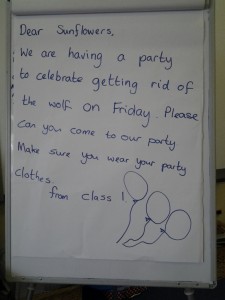 Dear Sunflowers,
We are having a party
to celebrate getting rid of
the wolf on Friday. Please
can you come to our party
Make sure you wear your party
clothes.
from class 1